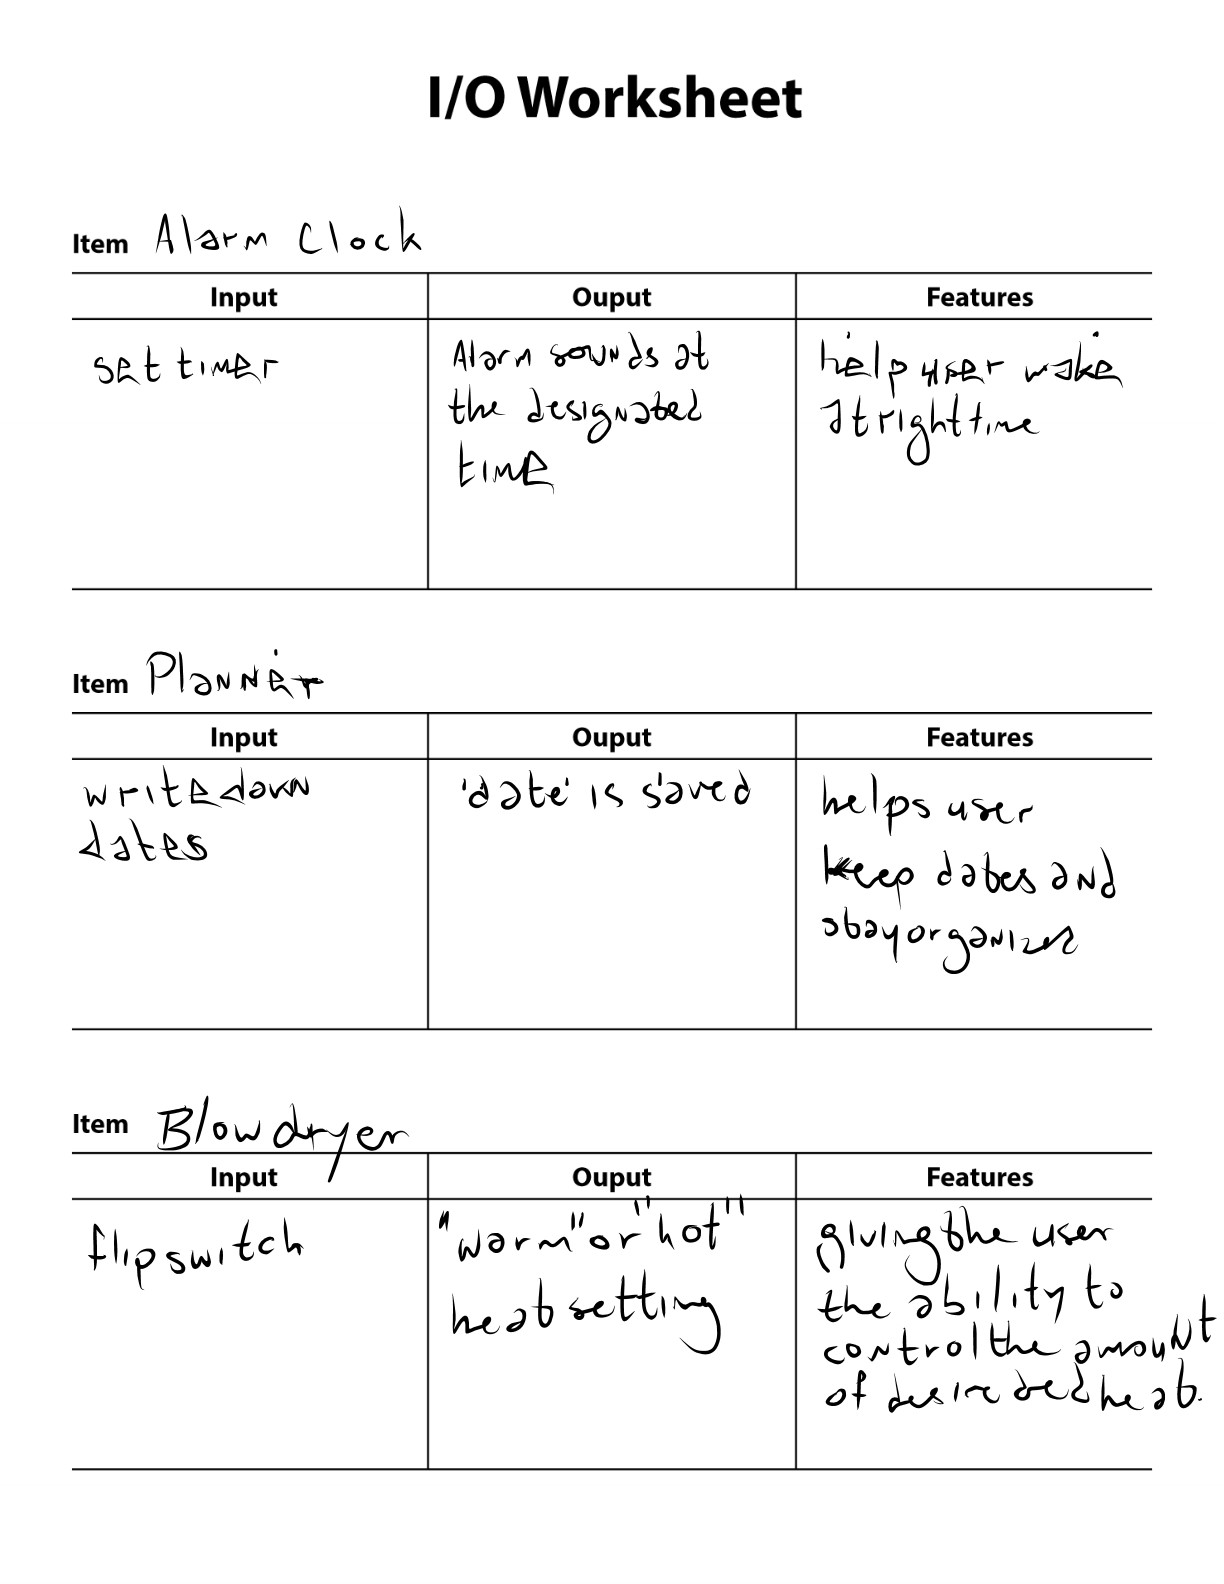 I/O Worksheet
Item Alarm Clock
Input Ouput Features
set timer
Alarm sounds at
the designated
time
help user wake
at right time
Item Planner
Input Ouput Features
write down
dates
'date' is saved
helps user
keep dates and
stay organized
Item Blow dryer
Input Ouput Features
flip switch
"warm" or "hot"
heat setting
giving the user
the ability to
control the amount
of desired heat.